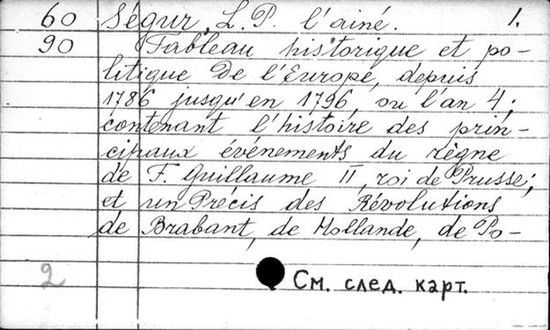 60 Ségur, L.P. l'ainé. 1.
90 Tableau historique et po-
litique de l'Europe, depuis
1786 jusqu'en 1796, ou l'an 4;
contenant l'histoire des prin-
cipaux événements du règne
de F. Guillaume II, roi de Prusse;
et un Précis des Révolutions
de Brabant, de Hollande, de Po-
2
См. след. карт.